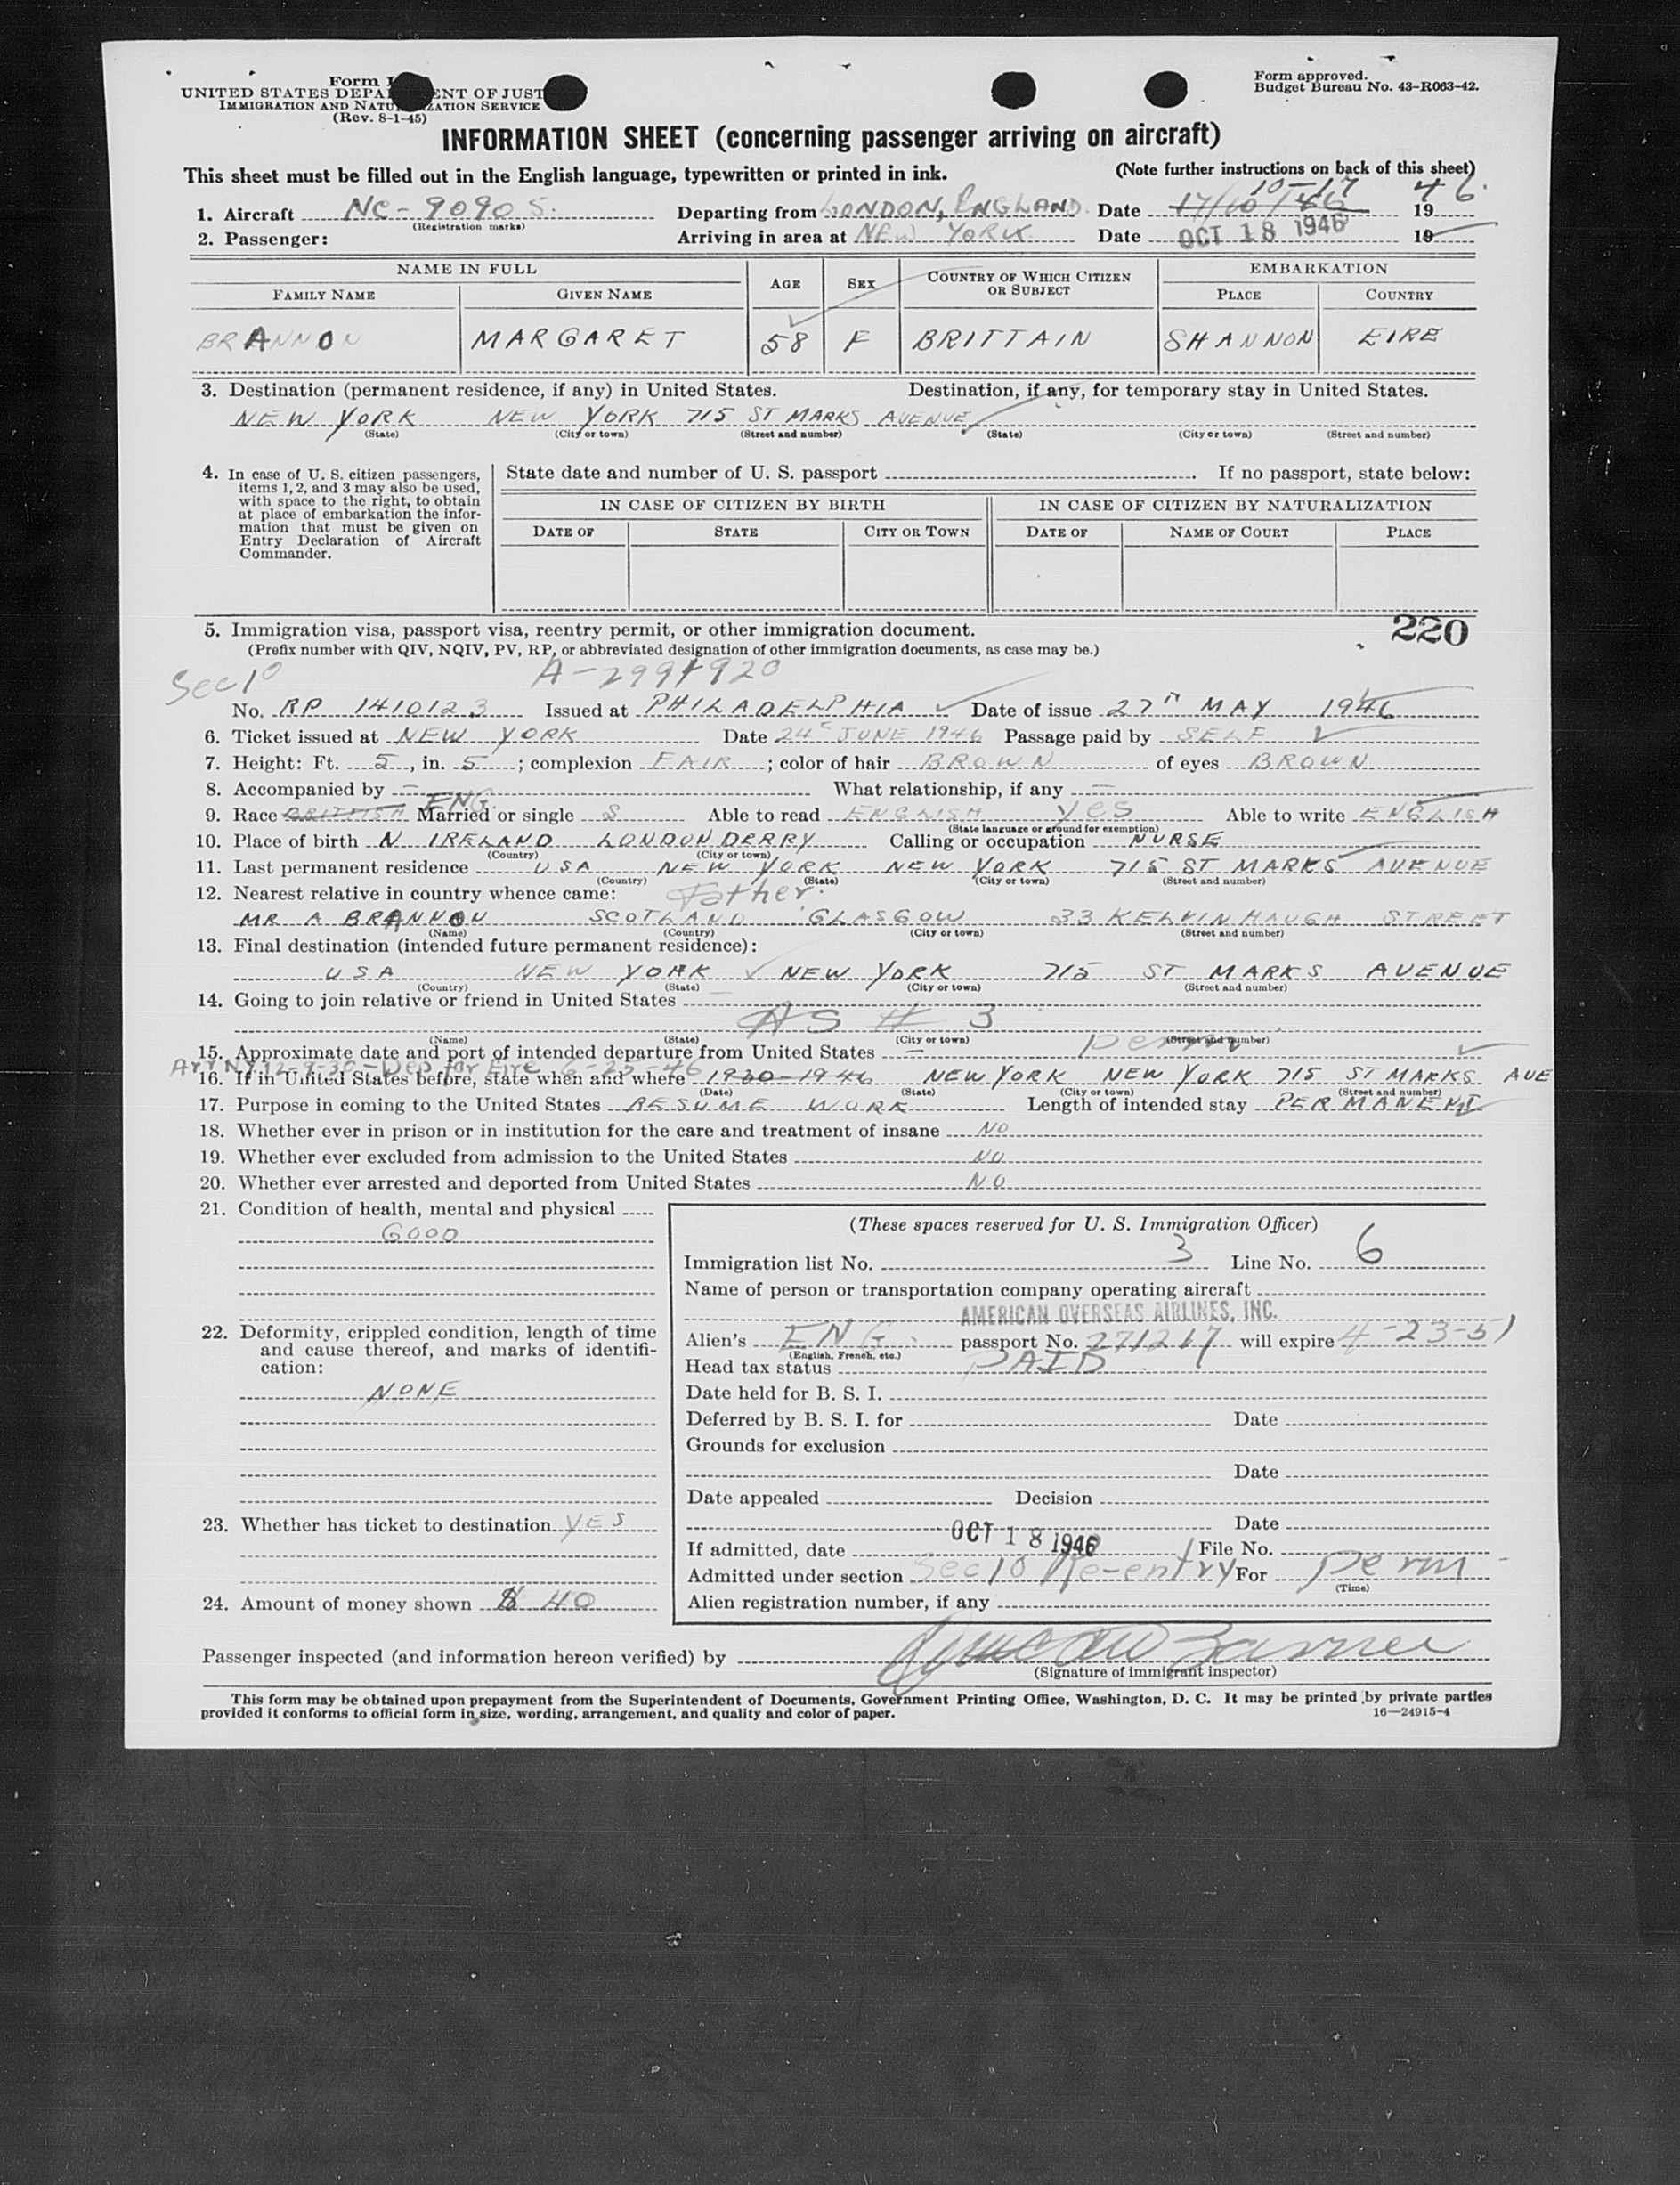 Form I
UNITED STATES DEPA ENT OF JUST
IMMIGRATION AND NATU ZATION SERVICE
(Rev. 8-1-45)
Form approved.
Budget Bureau No. 43-R063-42.
INFORMATION SHEET (concerning passenger arriving on aircraft)
This sheet must be filled out in the English language, typewritten or printed in ink. (Note further instructions on back of this sheet)
10-17 46
1. Aircraft NC-90905. Departing from LONDON, ENGLAND. Date 17/10/46 19
(Registration marks)
2. Passenger: Arriving in area at NEW YORK Date OCT 18 1946 19
NAME IN FULL AGE SEX COUNTRY OF WHICH CITIZEN OR SUBJECT EMBARKATION
FAMILY NAME GIVEN NAME PLACE COUNTRY
BRANNON MARGARET 58 F BRITTAIN SHANNON EIRE
3. Destination (permanent residence, if any) in United States. Destination, if any, for temporary stay in United States.
NEW YORK NEW YORK 715 ST MARKS AVENUE
(State) (City or town) (Street and number) (State) (City or town) (Street and number)
4. In case of U. S. citizen passengers, items 1, 2, and 3 may also be used, with space to the right, to obtain at place of embarkation the information that must be given on Entry Declaration of Aircraft Commander.
State date and number of U. S. passport . If no passport, state below:
IN CASE OF CITIZEN BY BIRTH IN CASE OF CITIZEN BY NATURALIZATION
DATE OF STATE CITY OR TOWN DATE OF NAME OF COURT PLACE
220
5. Immigration visa, passport visa, reentry permit, or other immigration document.
(Prefix number with QIV, NQIV, PV, RP, or abbreviated designation of other immigration documents, as case may be.)
Sec 10 A-2991920
No. RP 1410123 Issued at PHILADELPHIA Date of issue 27TH MAY 1946
6. Ticket issued at NEW YORK Date 24 JUNE 1946 Passage paid by SELF
7. Height: Ft. 5, in. 5; complexion FAIR; color of hair BROWN of eyes BROWN
8. Accompanied by — What relationship, if any —
9. Race BRITISH ENG. Married or single S Able to read ENGLISH yes Able to write ENGLISH
(State language or ground for exemption)
10. Place of birth N IRELAND LONDONDERRY Calling or occupation NURSE
(Country) (City or town)
11. Last permanent residence USA NEW YORK NEW YORK 715 ST MARKS AVENUE
(Country) (State) (City or town) (Street and number)
12. Nearest relative in country whence came: Father.
MR A BRANNON SCOTLAND GLASGOW 33 KELVINHAUGH STREET
(Name) (Country) (City or town) (Street and number)
13. Final destination (intended future permanent residence):
USA NEW YORK NEW YORK 715 ST MARKS AVENUE
(Country) (State) (City or town) (Street and number)
14. Going to join relative or friend in United States —
AS # 3
(Name) (State) (City or town) (Street and number)
15. Approximate date and port of intended departure from United States — perm
Arr NY 12-9-30 - Dep for Eire 6-25-46
16. If in United States before, state when and where 1930-1946 NEW YORK NEW YORK 715 ST MARKS AVE
(Date) (State) (City or town) (Street and number)
17. Purpose in coming to the United States RESUME WORK Length of intended stay PERMANENT
18. Whether ever in prison or in institution for the care and treatment of insane NO
19. Whether ever excluded from admission to the United States NO
20. Whether ever arrested and deported from United States NO
21. Condition of health, mental and physical
GOOD
22. Deformity, crippled condition, length of time and cause thereof, and marks of identification:
NONE
23. Whether has ticket to destination YES
24. Amount of money shown $ 40
(These spaces reserved for U. S. Immigration Officer)
Immigration list No. 3 Line No. 6
Name of person or transportation company operating aircraft
AMERICAN OVERSEAS AIRLINES, INC.
Alien's ENG. passport No. 271217 will expire 4-23-51
(English, French, etc.)
Head tax status PAID
Date held for B. S. I.
Deferred by B. S. I. for Date
Grounds for exclusion
Date
Date appealed Decision
Date
If admitted, date OCT 18 1946 File No.
Admitted under section Sec 10 Re-entry For perm
(Time)
Alien registration number, if any
Passenger inspected (and information hereon verified) by
(Signature of immigrant inspector)
This form may be obtained upon prepayment from the Superintendent of Documents, Government Printing Office, Washington, D. C. It may be printed by private parties
provided it conforms to official form in size, wording, arrangement, and quality and color of paper. 16—24915-4